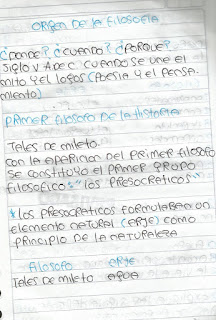 ORIGEN DE LA FILOSOFIA
¿DONDE? ¿CUANDO? ¿PORQUE?
SIGLO V ADEC CUANDO SE UNE EL
MITO Y EL LOGOS (POESIA Y EL PENSA
MIENTO)
PRIMER FILOSOFO DE LA HISTORIA
TELES DE MILETO.
CON LA APARICION DEL PRIMER FILOSOFO
SE CONSTITUYO EL PRIMER GRUPO
FILOSOFICO: "LOS PRESOCRATICOS"
*LOS PRESOCRATICOS FORMULABAN UN
ELEMENTO NATURAL (ARJE) COMO
PRINCIPIO DE LA NATURALEZA
FILOSOFO ARJE
TELES DE MILETO AGUA